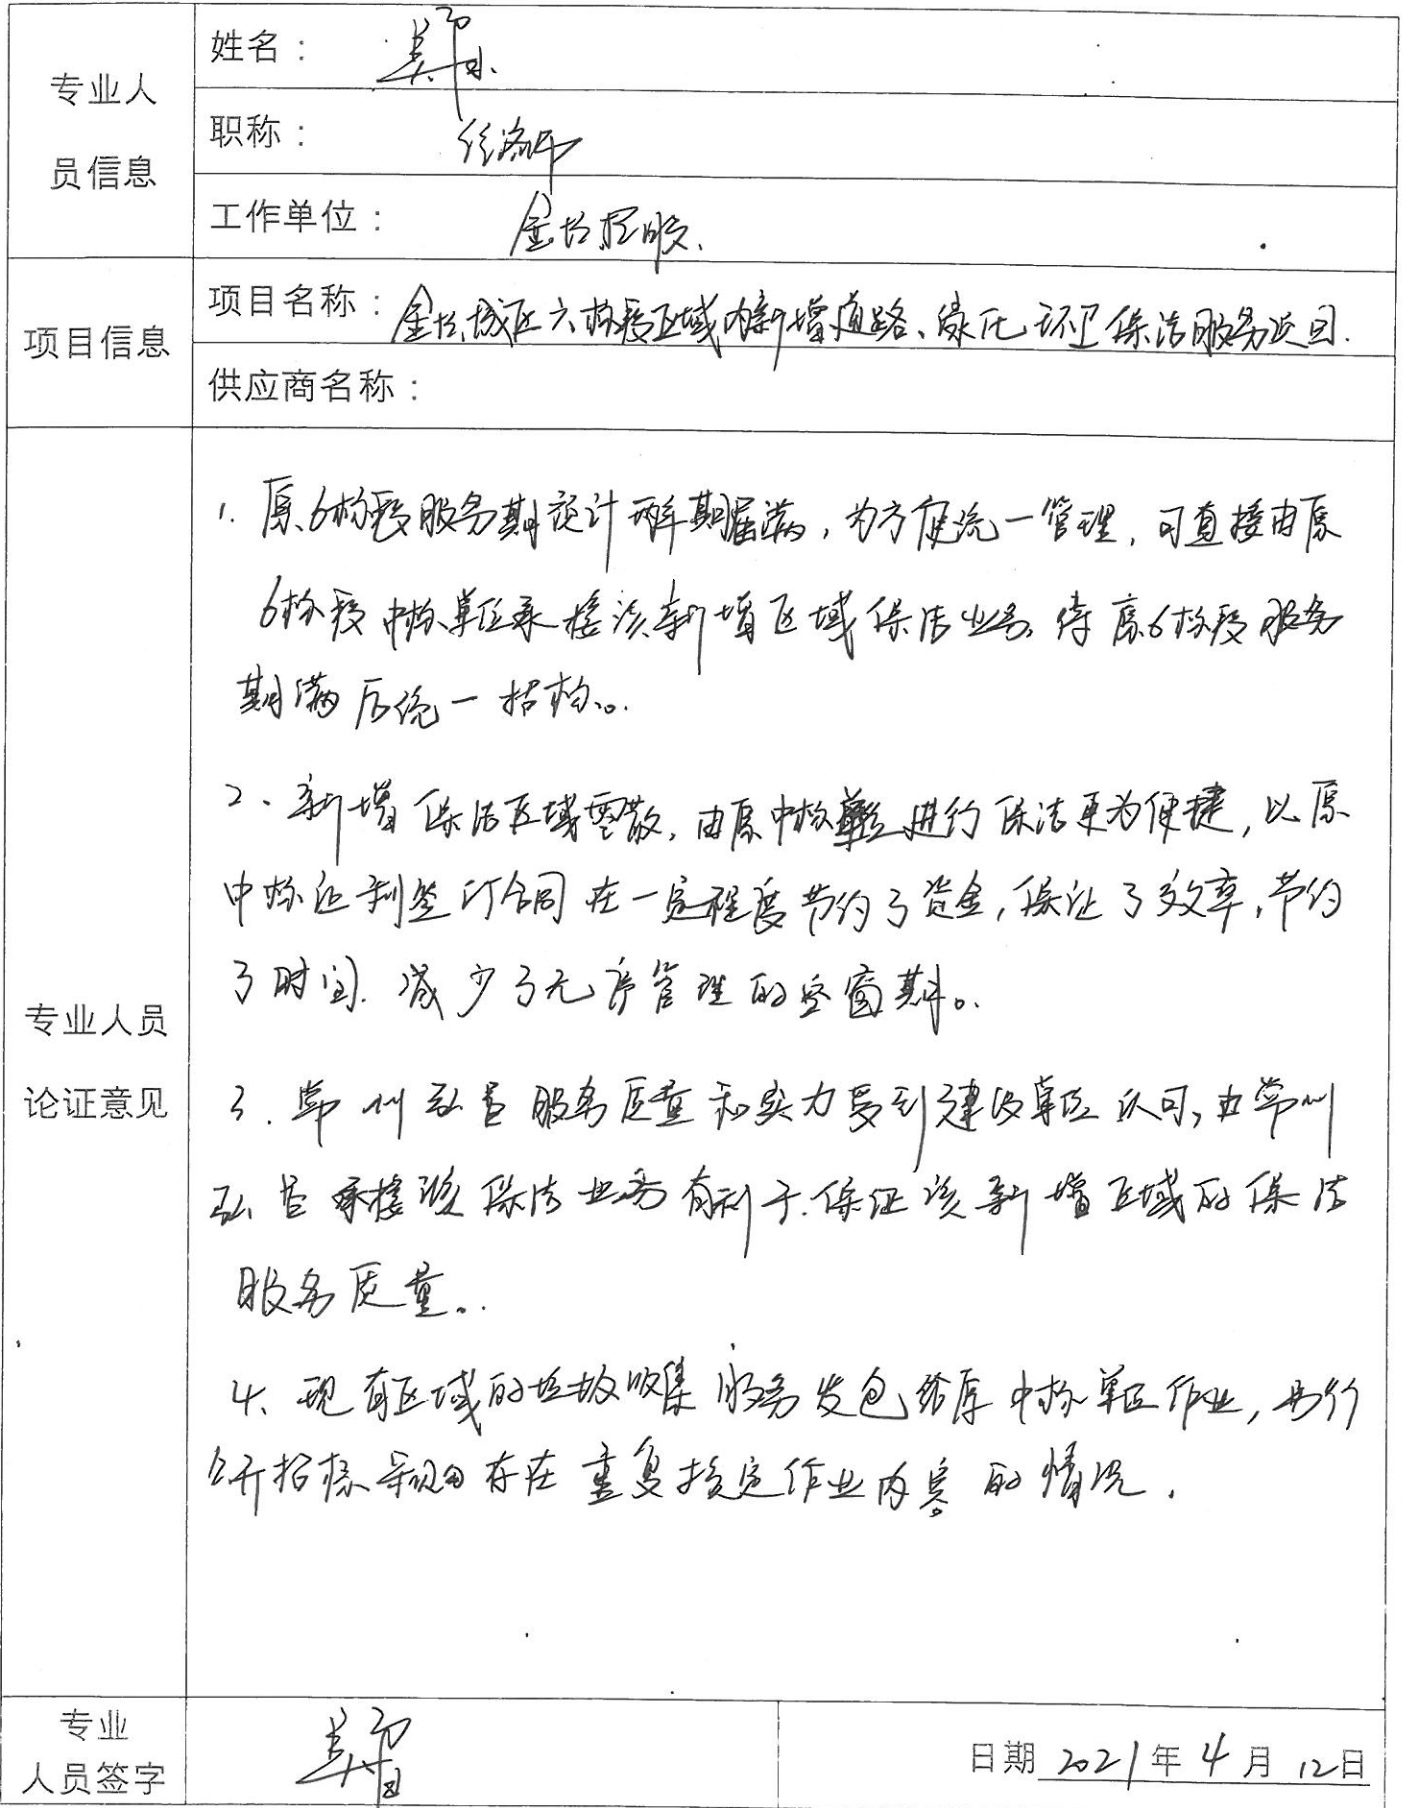 专业人
员信息
姓名：
职称：经济师
工作单位：金坛控股.
项目信息
项目名称：金坛城区六标段区域内新增道路、绿化环卫保洁服务项目.
供应商名称：
专业人员
论证意见
1. 原6标段服务期设计两年期届满，为方便统一管理，可直接由原
6标段中标单位承接该新增区域保洁业务，待原6标段服务
期满后统一招标。
2、新增保洁区域零散，由原中标单位进行保洁更为便捷，以原
中标汇利签订合同在一定程度节约了资金，保证了效率，节约
了时间.减少了无序管理的空窗期。
3.常州弘昌服务质量和实力受到建设单位认可，由常州
弘昌承接该保洁业务有利于保证该新增区域的保洁
服务质量。
4、现有区域的垃圾收集服务发包给原中标单位作业，再行
公开招标 存在重复指定作业内容的情况.
专业
人员签字
日期 2021年4月12日